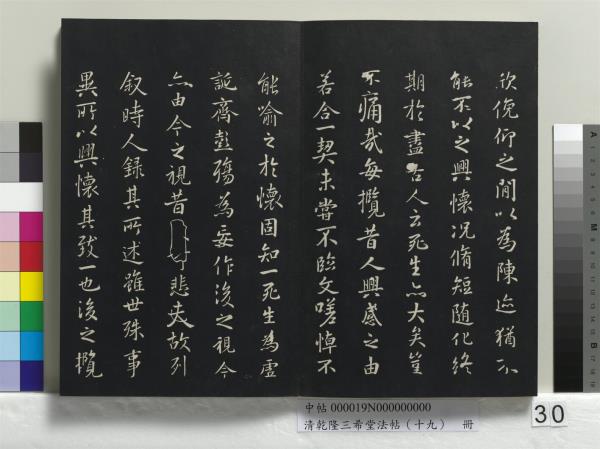 欣俛仰之間以為陳迹猶不
能不以之興懷況脩短隨化終
期於盡古人云死生亦大矣豈
不痛哉每攬昔人興感之由
若合一契未嘗不臨文嗟悼不
能喻之於懷固知一死生為虛
誕齊彭殤為妄作後之視今
亦由今之視昔悲夫故列
叙時人録其所述雖世殊事
異所以興懷其致一也後之攬
中帖 000019N000000000
清乾隆三希堂法帖（十九） 冊
30